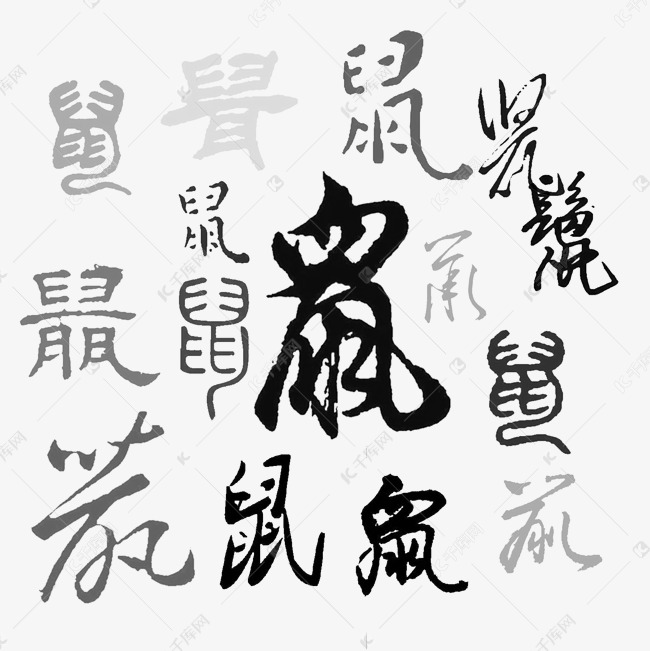 鼠
鼠
鼠
鼠
鼠
鼠
鼠
鼠
鼠
鼠
鼠
鼠
鼠
鼠
千库网